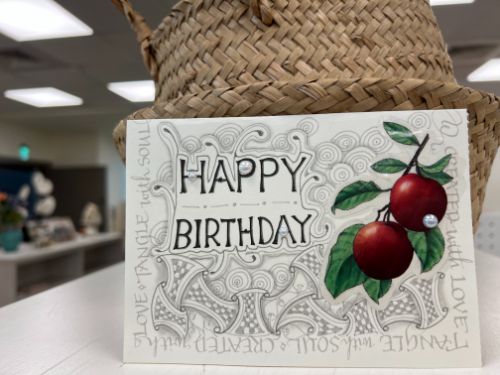 HAPPY
BIRTHDAY
LOVE • TANGLE with SOUL
CREATED with LOVE
TANGLE with SOUL • CREATED with